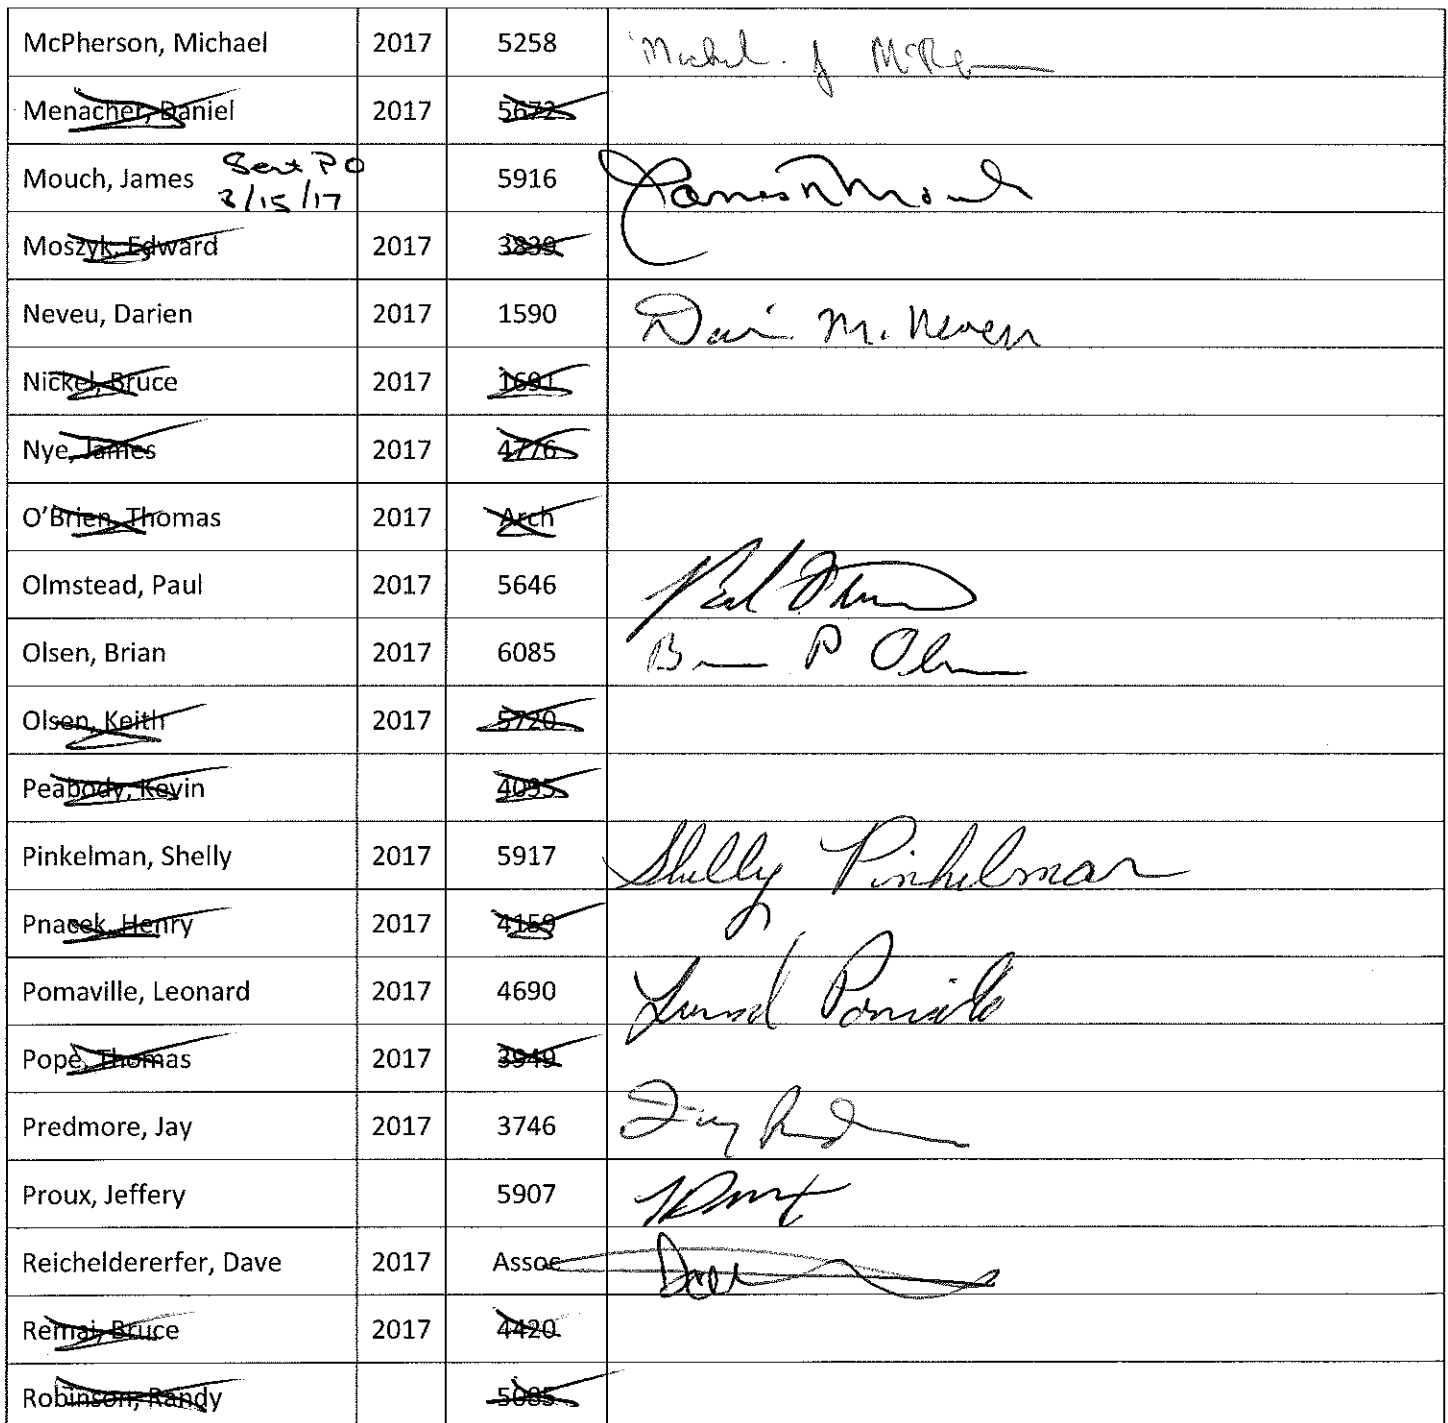 McPherson, Michael 2017 5258
Menacher, Daniel 2017 5672
Mouch, James Sent PO 3/15/17 5916 James R Mouch
Moszyk, Edward 2017 3839
Neveu, Darien 2017 1590 M. Neveu
Nickel, Bruce 2017 1691
Nye, James 2017 4776
O'Brien, Thomas 2017 Arch
Olmstead, Paul 2017 5646
Olsen, Brian 2017 6085 B P Olsen
Olsen, Keith 2017 5720
Peabody, Kevin
Pinkelman, Shelly 2017 5917 Shelly Pinkelman
Pnacek, Henry 2017 4159
Pomaville, Leonard 2017 4690 Leonard Pomaville
Pope, Thomas 2017 3949
Predmore, Jay 2017 3746
Proux, Jeffery 5907
Reicheldererfer, Dave 2017 Assoc
Remai, Bruce 2017 4420
Robinson, Randy 5085